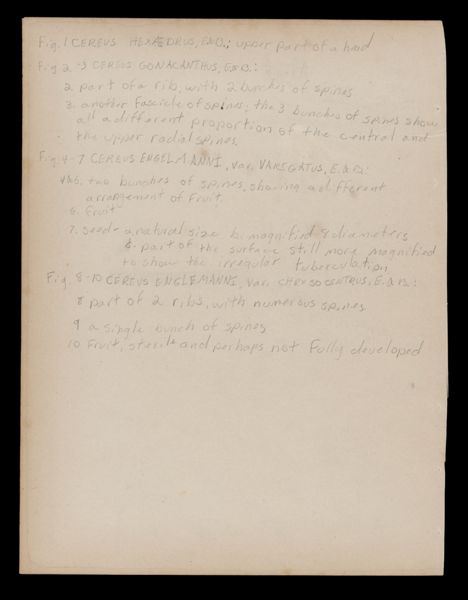 Fig. 1 CEREUS HEXÆDRUS, E&B.; upper part of a head
Fig 2-3 CEREUS GONACANTHUS, E&B.:
2 part of a rib, with 2 bunches of spines
3. another fascicle of spines; the 3 bunches of spines show
all a different proportion of the central and
the upper radial spines.
Fig. 4-7 CEREUS ENGELMANNI, var. VARIGATUS, E. & B.:
4&5. two bunches of spines, showing a different
arrangement of fruit.
6. Fruit
7. seed- a. natural size b. magnified 8 diameters
part of the surface still more magnified
to show the irregular tuberculation
Fig 8-10 CEREUS ENGLEMANNI, var. CHRYSOCENTRUS, E. & B.:
8 part of 2 ribs, with numerous spines
9 a single bunch of spines
10 Fruit, sterile and perhaps not fully developed